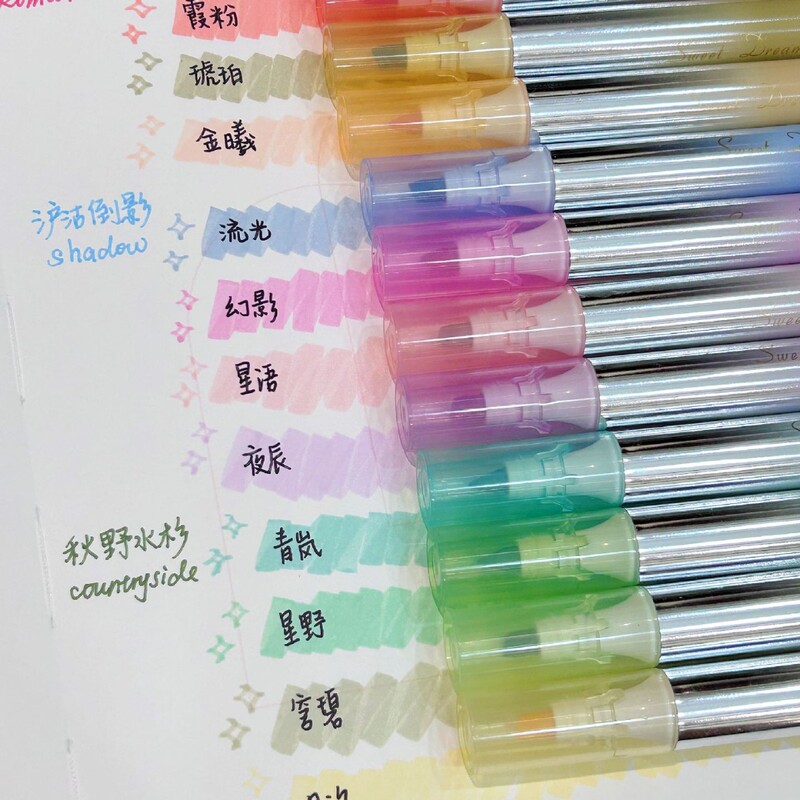 霞粉
琥珀
金曦
沪沽倒影
shadow
流光
幻影
星语
夜辰
秋野水杉
countryside
青岚
星野
穹碧
Sweet Dream
Sweet
Sweet